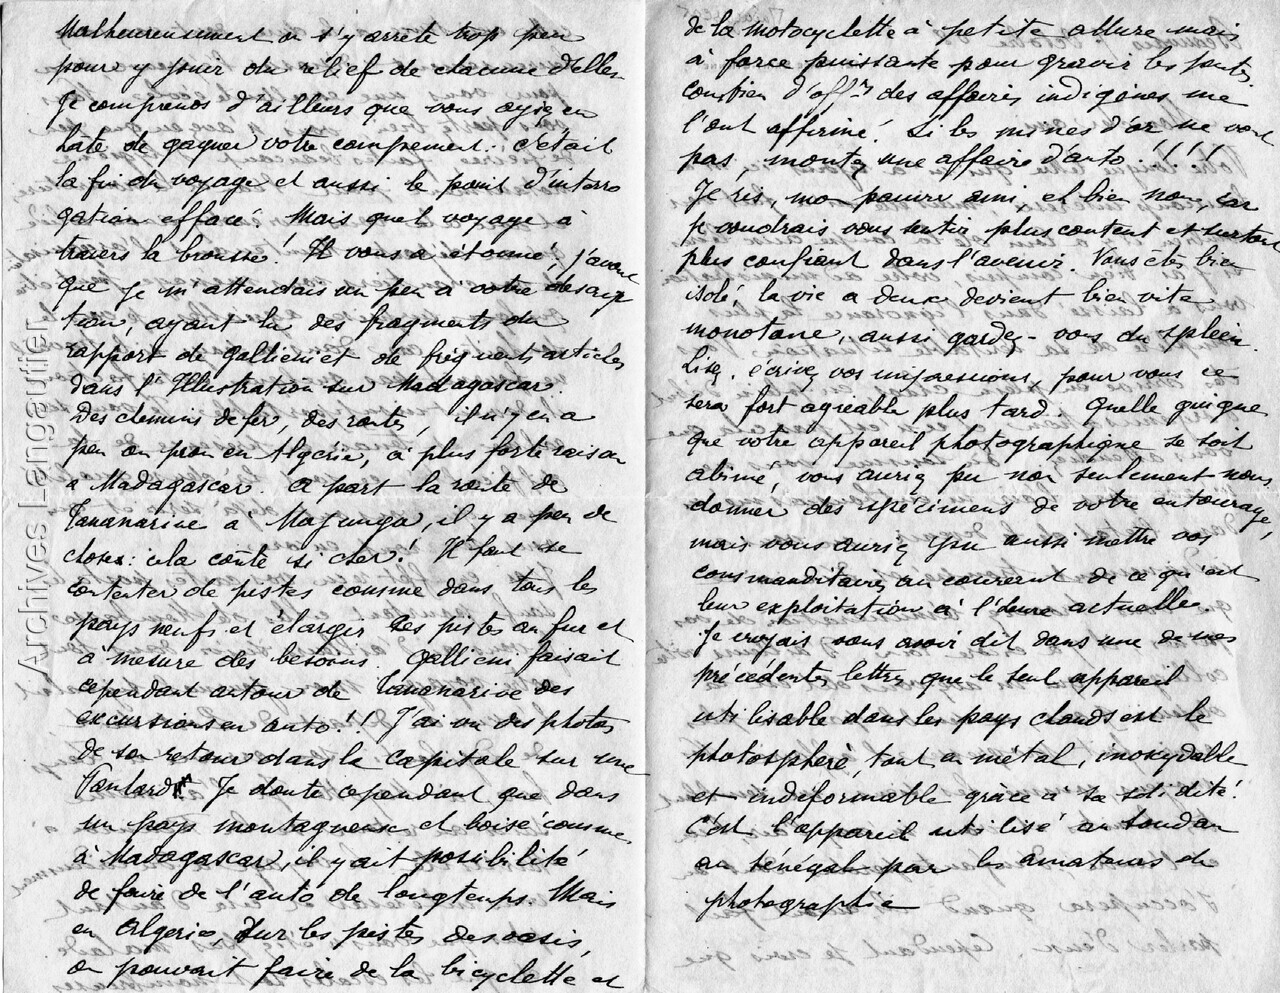 Malheureusement on s'y arrête trop peu
pour y jouir du relief de chacune d'elles.
Je comprends d'ailleurs que vous ayiez eu
hâte de gagner votre campement. c'était
la fin du voyage et aussi le point d'interro
gation effacé! Mais quel voyage à
travers la brousse! Il vous a étonné, j'avoue
que je m'attendais un peu à votre descrip
tion, ayant lu des fragments du
rapport de Gallieni et de fréquents articles
dans l'Illustration sur Madagascar.
Des chemins de fer, des routes, il n'y en a
peu ou prou en Algérie, à plus forte raison
à Madagascar. A part la route de
Tananarive à Majunga, il y a peu de
choses: cela coûte si cher! Il faut se
contenter de pistes comme dans tous les
pays neufs et élargir ces pistes au fur et
à mesure des besoins. Gallieni faisait
cependant autour de Tananarive des
excursions en auto!! J'ai vu des photos
de son retour dans la capitale sur une
Panhard. Je doute cependant que dans
un pays montagneux et boisé comme
à Madagascar, il y ait possibilité
de faire de l'auto de longtemps. Mais
en Algérie, sur les pistes des oasis,
on pouvait faire de la bicyclette et
de la motocyclette à petite allure mais
à force puissante pour gravir les pentes
combien d'offrs des affaires indigènes me
l'ont affirmé! Si les mines d'or ne vont
pas, montez une affaire d'auto!!!!!
Je ris, mon pauvre ami, et bien non, car
je voudrais vous sentir plus content et surtout
plus confiant dans l'avenir. Vous êtes bien
isolé, la vie à deux devient bien vite
monotone, aussi gardez-vous du spleen.
Lisez, écrivez vos impressions, pour vous ce
sera fort agréable plus tard. Quelle guigne
que votre appareil photographique se soit
abimé, vous auriez pu non seulement nous
donner des spécimens de votre entourage,
mais vous auriez pu aussi mettre vos
commanditaires au courant de ce qu'est
leur exploitation à l'heure actuelle.
Je croyais vous avoir dit dans une de mes
précédentes lettres que le seul appareil
utilisable dans les pays chauds est le
photosphère, tout en métal, inoxydable
et indéformable grâce à sa solidité!
C'est l'appareil utilisé au Soudan
au Sénégal par les amateurs de
photographie
Archives Langautier